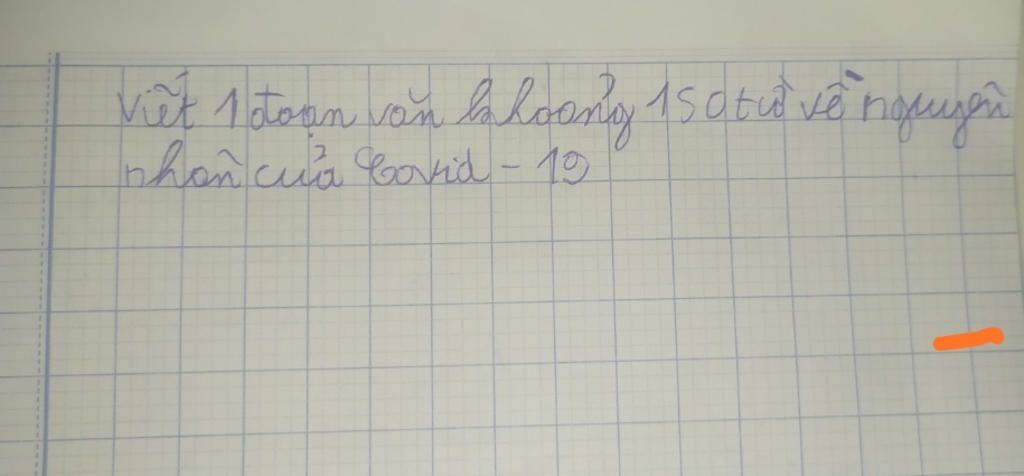 Viết 1 đoạn văn khoảng 150 từ về nguyên
nhân của Covid - 19